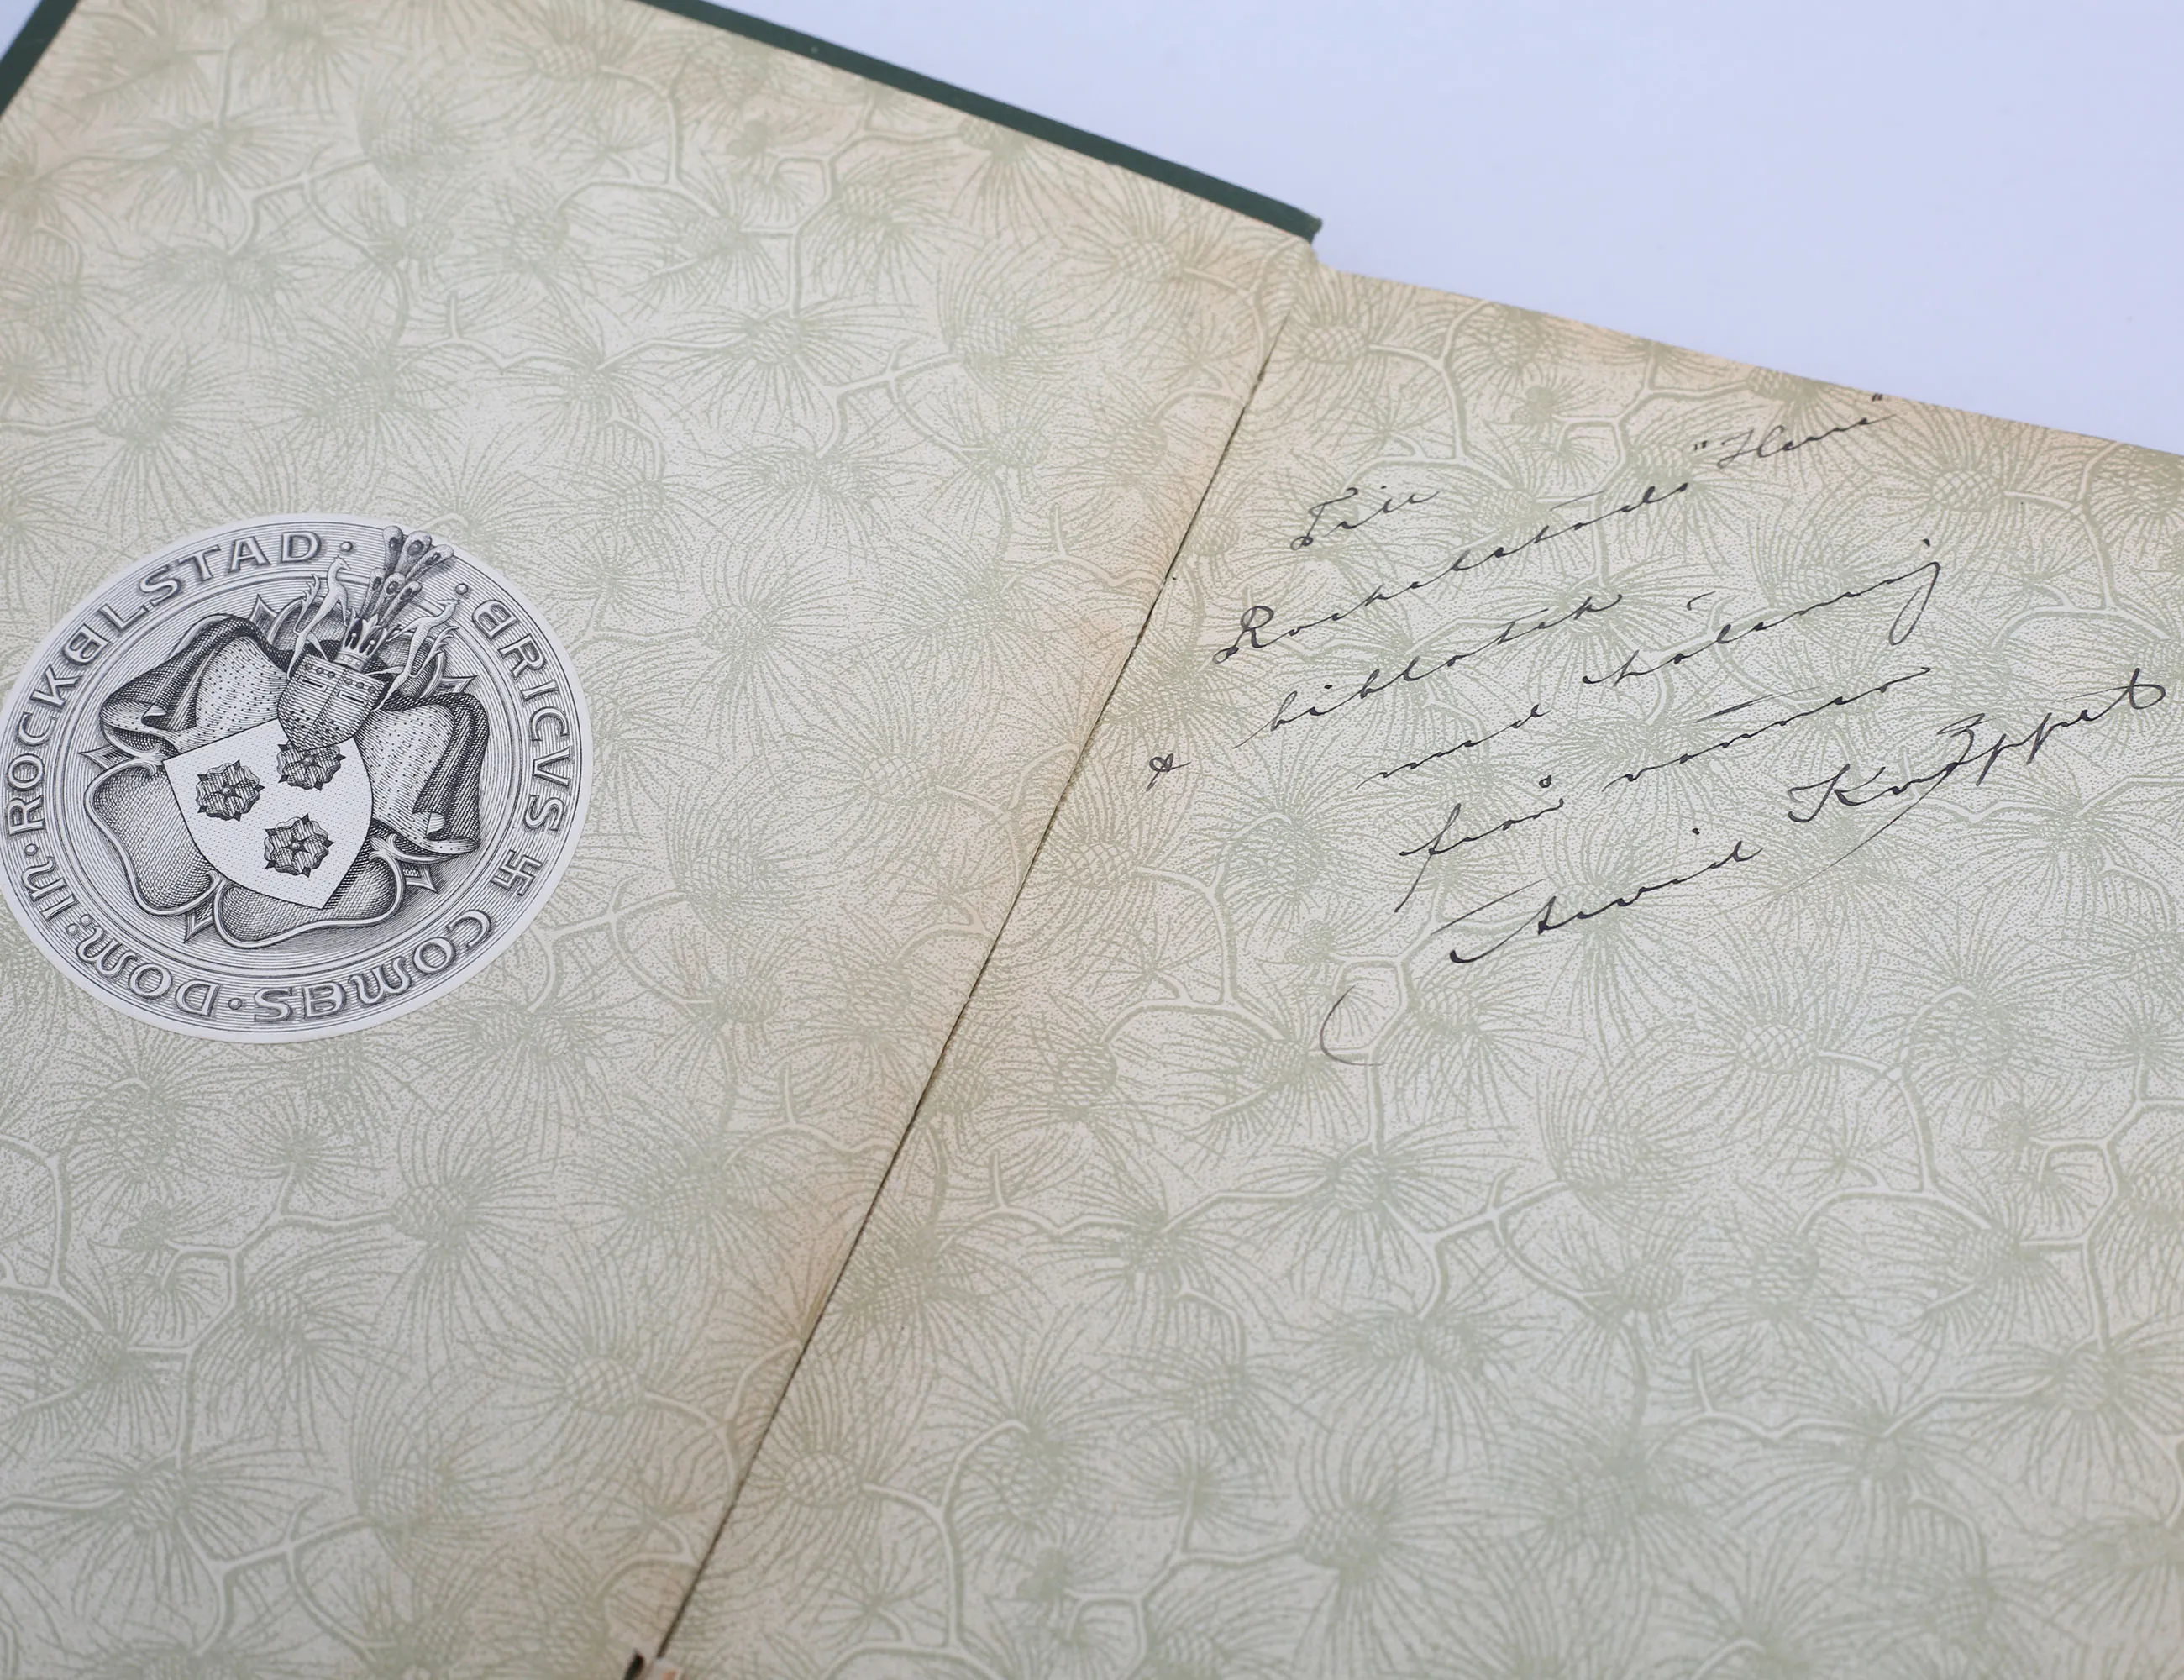 · ERICVS 卐 COMES · DOM: IN · ROCKELSTAD ·
Till
Rockelstads "Herre"
bibliotek
med hälsning
från vännen
Arvid Knöppel